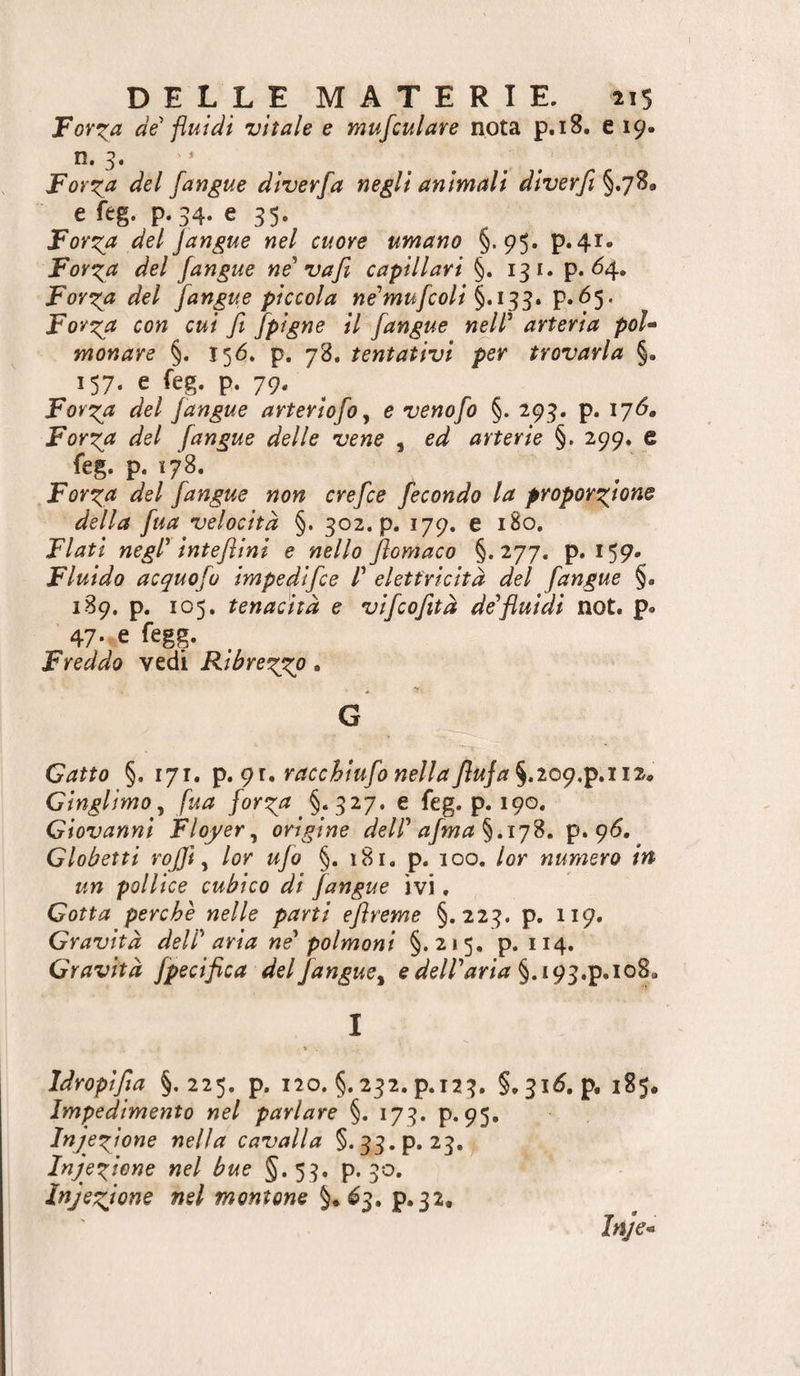 DELLE MATERIE. 215
Forza de' fluidi vitale e muſculare nota p.18. e 19.
n. 3.
Forza del ſangue diverſa negli animali diverſi §.78.
e ſeg. p. 34. e 35.
Forza del ſangue nel cuore umano §. 95. p. 41.
Forza del ſangue ne' vaſi capillari §. 131. p. 64.
Forza del ſangue piccola ne'muſcoli §.133. p.65.
Forza con cui ſi ſpigne il ſangue nell' arteria pol-
monare §. 156. p. 78. tentativi per trovarla §.
157. e ſeg. p. 79.
Forza del ſangue arterioſo, e venoſo §. 293. p. 176.
Forza del ſangue delle vene , ed arterie §. 299. e
ſeg. p. 178.
Forza del ſangue non creſce ſecondo la proporzione
della ſua velocità §. 302. p. 179. e 180.
Flati negl' inteſtini e nello ſtomaco §. 277. p. 159.
Fluido acquoſo impediſce l' elettricità del ſangue §.
189. p. 105. tenacità e viſcoſità de'fluidi not. p.
47. e ſegg.
Freddo vedi Ribrezzo .
G
Gatto §. 171. p. 91. racchiuſo nella ſtuſa §.209.p.112.
Ginglimo, ſua forza §. 327. e ſeg. p. 190.
Giovanni Floyer, origine dell' aſma §.178. p. 96.
Globetti roſſi, lor uſo §. 181. p. 100. lor numero in
un pollice cubico di ſangue ivi.
Gotta perchè nelle parti eſtreme §. 223. p. 119.
Gravità dell' aria ne' polmoni §. 215. p. 114.
Gravità ſpecifica del ſangue, e dell'aria §.193.p.108.
I
Idropiſia §. 225. p. 120. §. 232. p.123. §. 316. p. 185.
Impedimento nel parlare §. 173. p. 95.
Injezione nella cavalla §. 33. p. 23.
Injezione nel bue §. 53. p. 30.
Injezione nel montone §. 63. p. 32.
Inje-